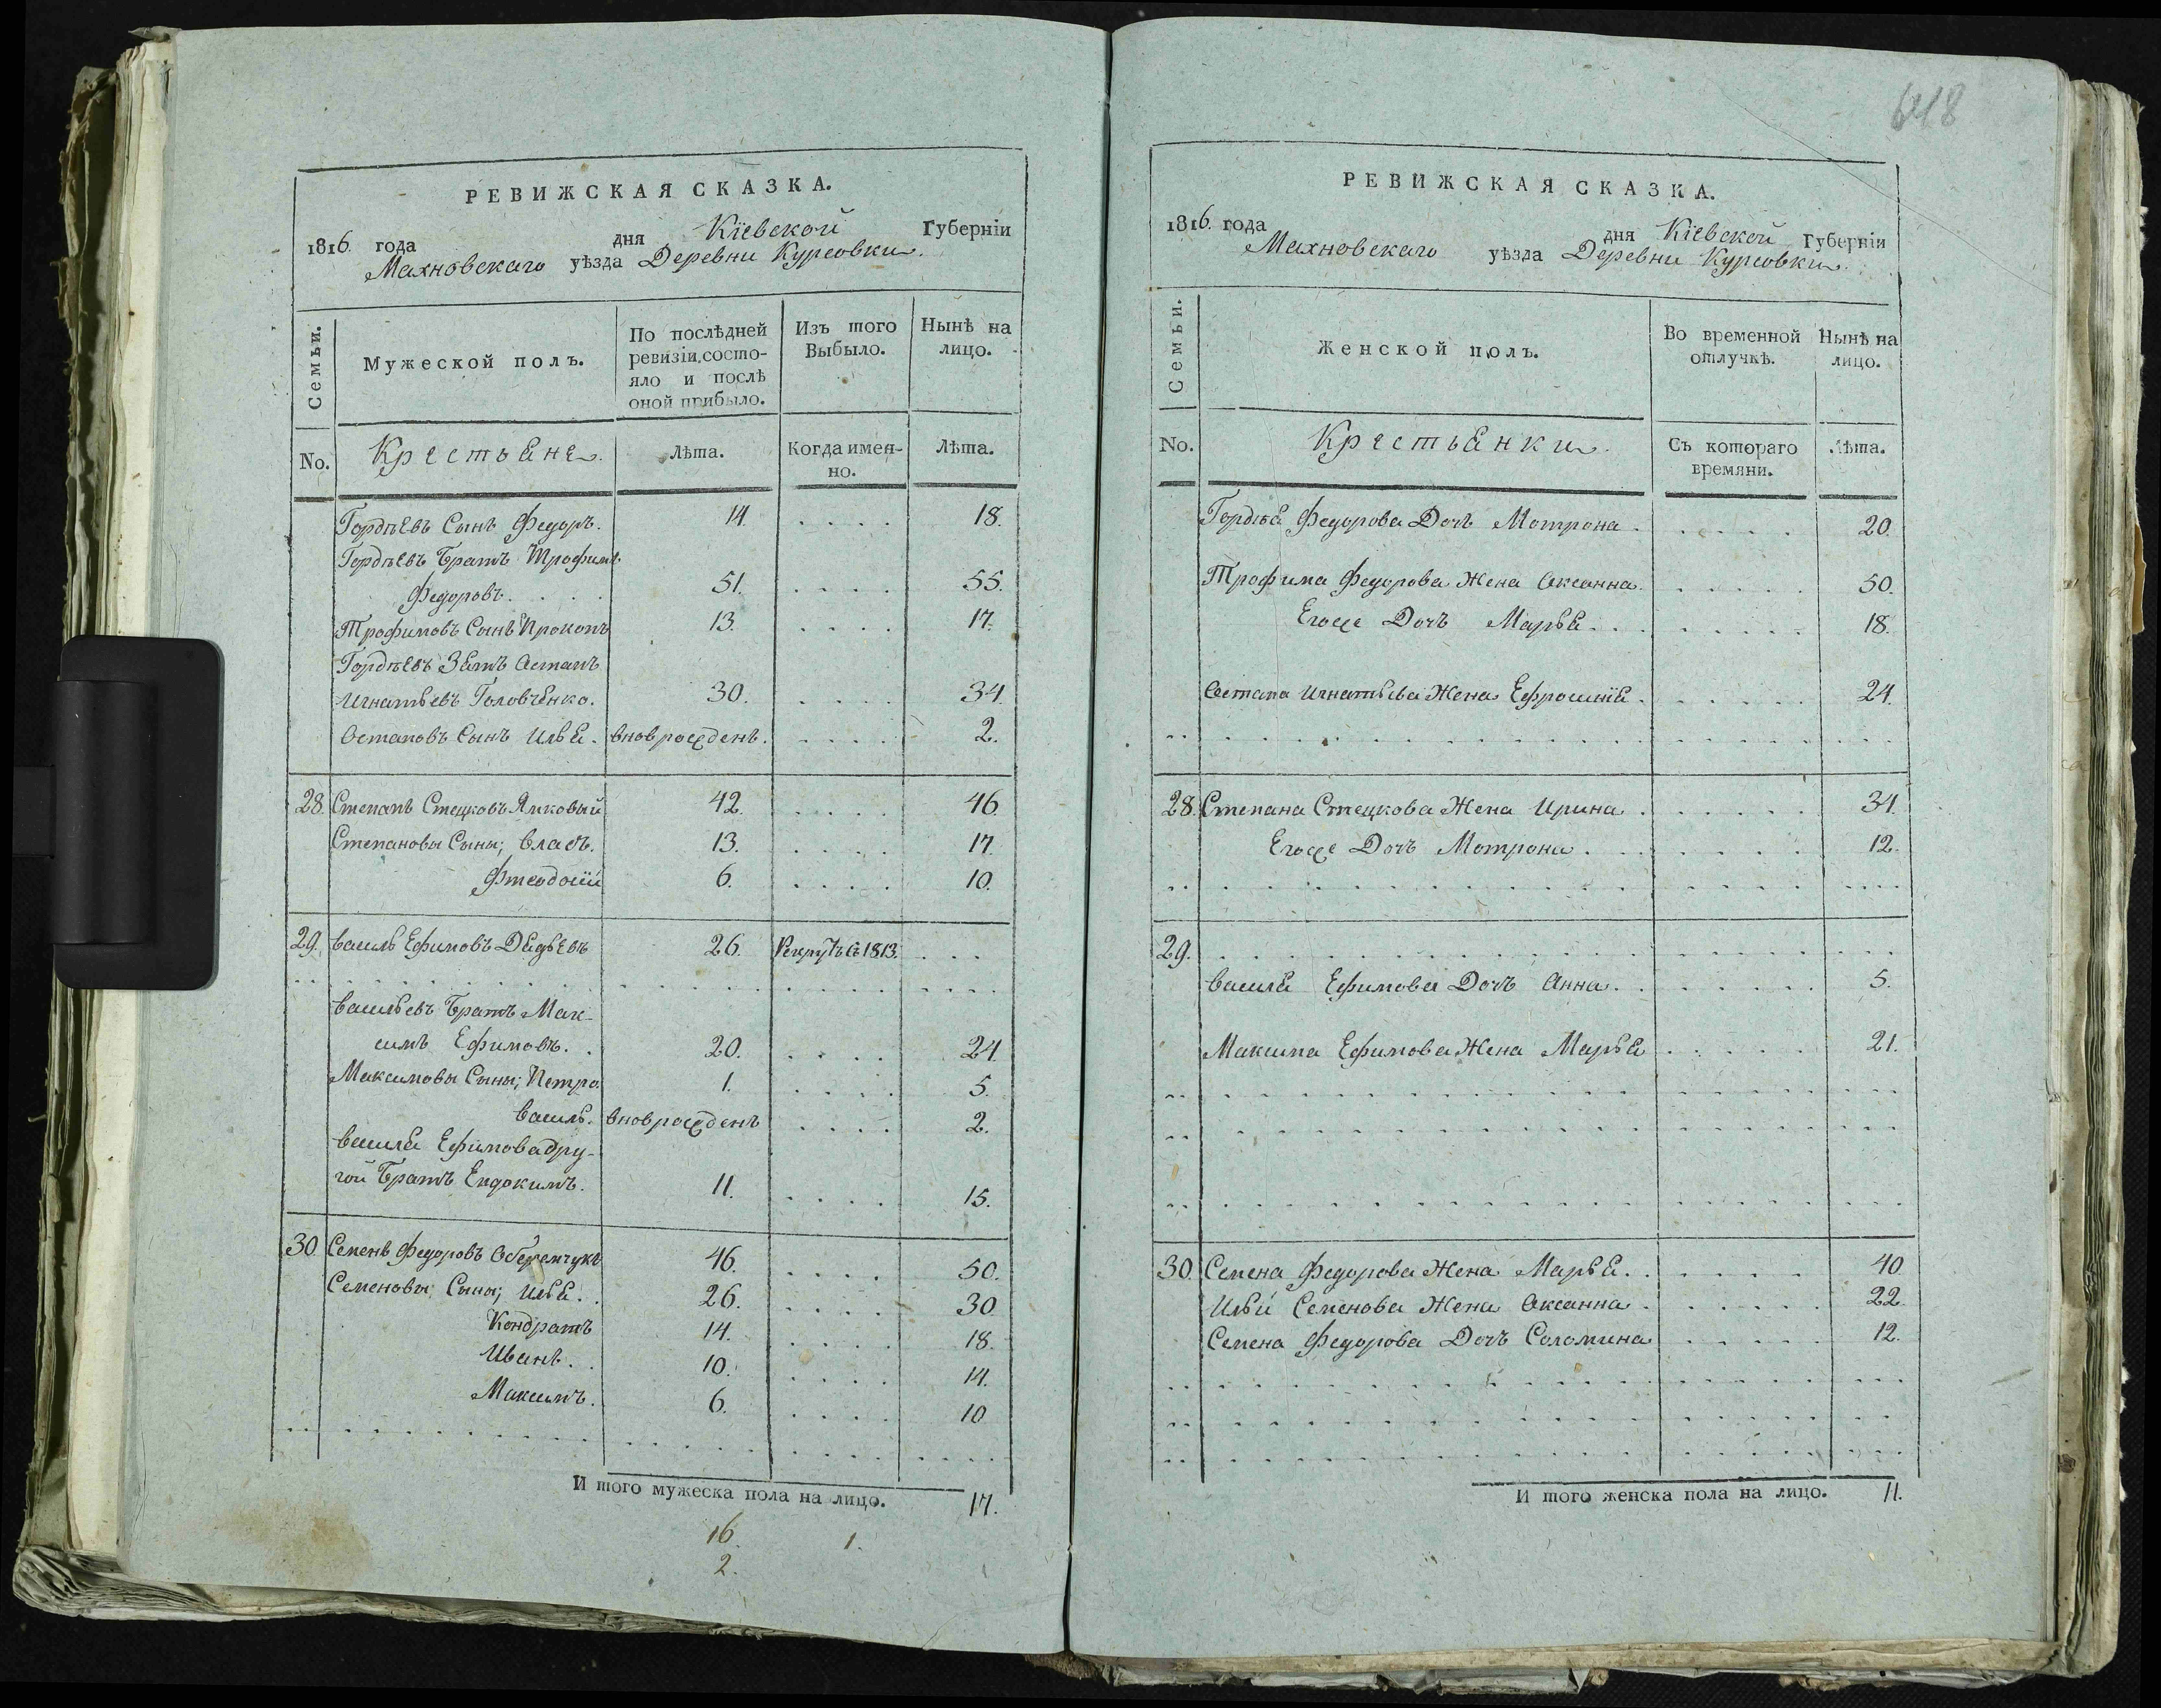 РЕВИЖСКАЯ СКАЗКА.
1816. года дня Кіевской Губерніи
Махновскаго уѣзда Деревни Курсовки.
Семьи.
Мужеской полъ.
По послѣдней ревизіи, состо-
яло и послѣ
оной прибыло.
Изъ того
Выбыло.
Нынѣ на
лицо.
No.
Крестьяне.
Лѣта.
Когда имен-
но.
Лѣта.
Гордѣевъ Сынъ Федоръ. 14. .... 18.
Гордѣевъ Братъ Трофимъ
Федоровъ. 51. .... 55.
Трофимовъ Сынъ Прокопъ 13. .... 17.
Гордѣевъ Зять Астапъ
Игнатьевъ Головченко. 30. .... 34.
Остаповъ Сынъ Илья. вноврожденъ. .... 2.
28. Степанъ Стецковъ Яцковый 42. .... 46.
Степановы Сыны; Власъ. 13. .... 17.
Фтеодосій 6. .... 10.
29. Василь Ефимовъ Дядьевъ 26. Рекрутъ съ 1813. ...
Васильевъ Братъ Мак-
симъ Ефимовъ. 20. .... 24.
Максимовы Сыны; Петро. 1. .... 5.
Василь. вноврожденъ .... 2.
Василя Ефимова дру-
гой Братъ Евдокимъ. 11. .... 15.
30. Семенъ Федоровъ Оберемчукъ 46. .... 50.
Семеновы Сыны; Илья. 26. .... 30
Кондратъ 14. .... 18.
Иванъ. 10. .... 14.
Максимъ. 6. .... 10
И того мужеска пола на лицо. 17.
16. 1.
2.
618
РЕВИЖСКАЯ СКАЗКА.
1816. года дня Кіевской Губерніи
Махновскаго уѣзда Деревни Курсовки.
Семьи.
Женской полъ.
Во временной
отлучкѣ.
Нынѣ на
лицо.
No.
Крестьянки.
Съ котораго
времяни.
Лѣта.
Гордѣя Федорова Дочь Мотрона. .... 20.
Трофима Федорова Жена Оксанна. .... 50.
Егоже Дочь Марья. .... 18.
Остапа Игнатьева Жена Ефросинія. .... 24.
28. Степана Стецкова Жена Ирина. .... 34.
Егоже Дочь Мотрона. .... 12.
29.
Василя Ефимова Дочь Анна. .... 5.
Максима Ефимова Жена Марья .... 21.
30. Семена Федорова Жена Марья. .... 40
Ильи Семенова Жена Оксанна. .... 22.
Семена Федорова Дочь Соломина .... 12.
И того женска пола на лицо. 11.